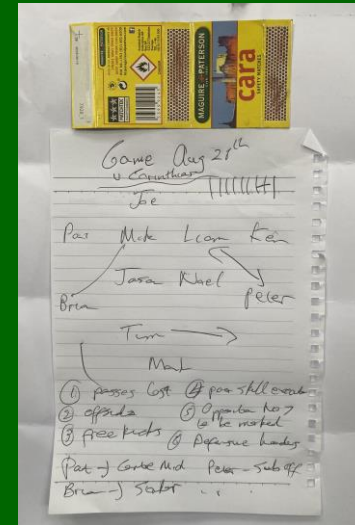 MAGUIRE & PATERSON
cara
SAFETY MATCHES
Game Aug 21th
v Corinthians
Joe
Pat Mick Liam Ken
Jason Noel
Brian Peter
Tim
Mark
① passes lost ④ poor skill
② offside ⑤ Opposition No 7
to be marked
③ free kicks ⑥ Defensive headers
Pat → Centre Mid Peter - Sub off
Brian →